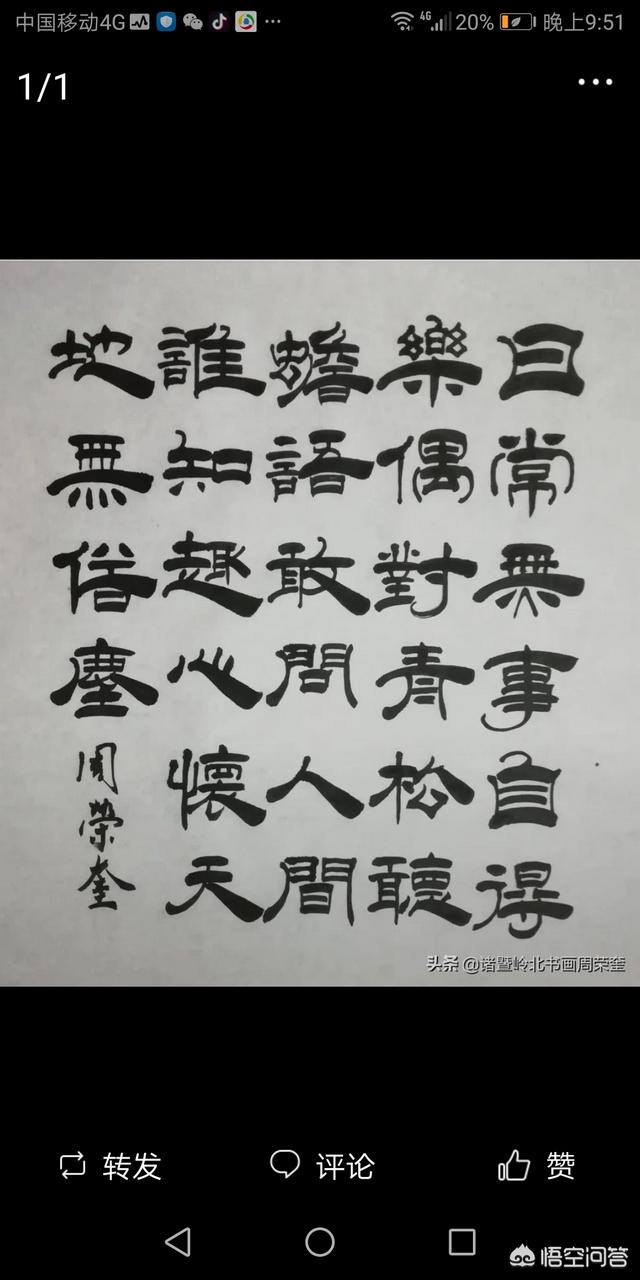 中国移动4G 4G 20% 晚上9:51
1/1
日常無事自得
樂偶對青松聽
蟾語敢問人間
誰知趣心懷天
地無俗塵
周榮奎
头条 @诸暨岭北书画周荣奎
转发 评论 赞
悟空问答